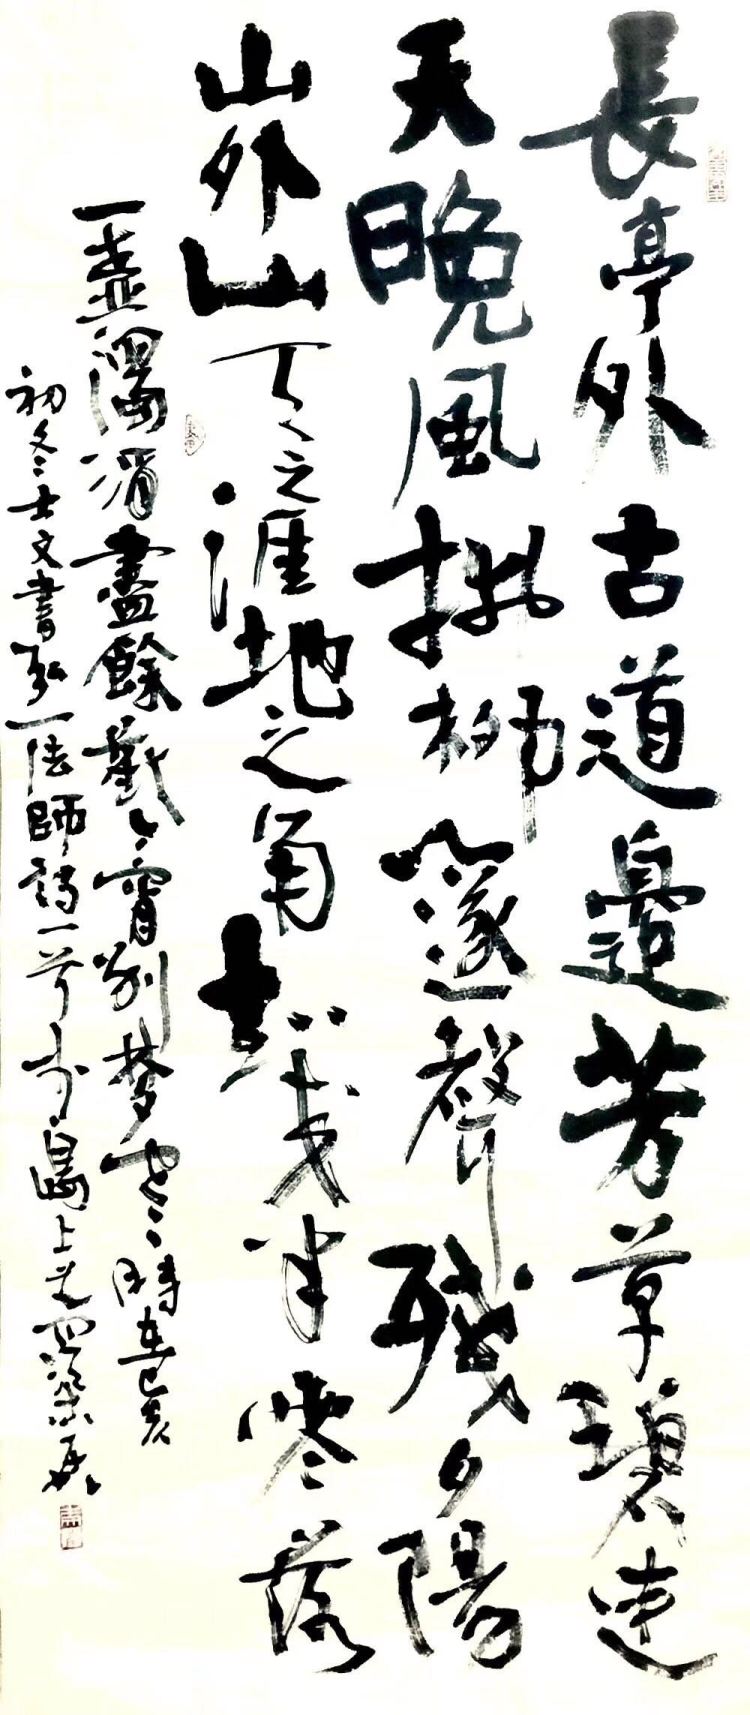 長亭外古道邊芳草碧連
天晚風拂柳篴聲殘夕陽
山外山天之涯地之角知交半零落
一壺濁酒盡餘歡今宵別夢寒時在己亥
初冬士文書弘一法師詩一首於島上